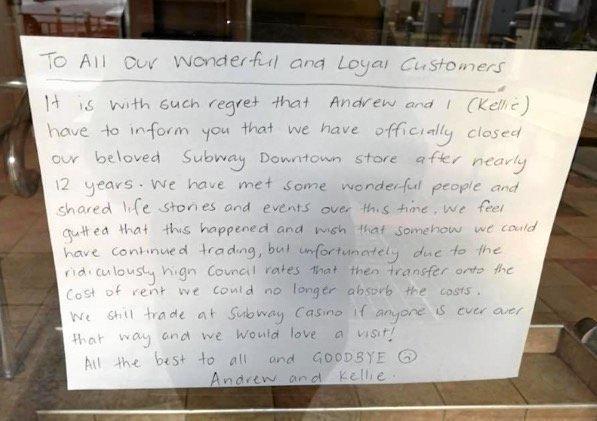 To All Our Wonderful and Loyal Customers
It is with such regret that Andrew and I (Kellie)
have to inform you that we have officially closed
our beloved Subway Downtown store after nearly
12 years. We have met some wonderful people and
shared life stories and events over this time. We feel
gutted that this happened and wish that somehow we could
have continued trading, but unfortunately due to the
ridiculously high Council rates that then transfer onto the
cost of rent we could no longer absorb the costs.
We still trade at Subway Casino if anyone is ever over
that way and we would love a visit!
All the best to all and GOODBYE ☹
Andrew and Kellie.